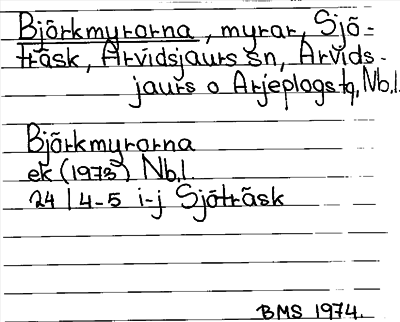 Björkmyrarna, myrar, Sjö-
träsk, Arvidsjaurs sn, Arvids-
jaurs o Arjeplogs tg, Nb.l.
Björkmyrarna
ek (1973) Nb.l.
24 | 4-5 i-j Sjöträsk
BMS 1974.